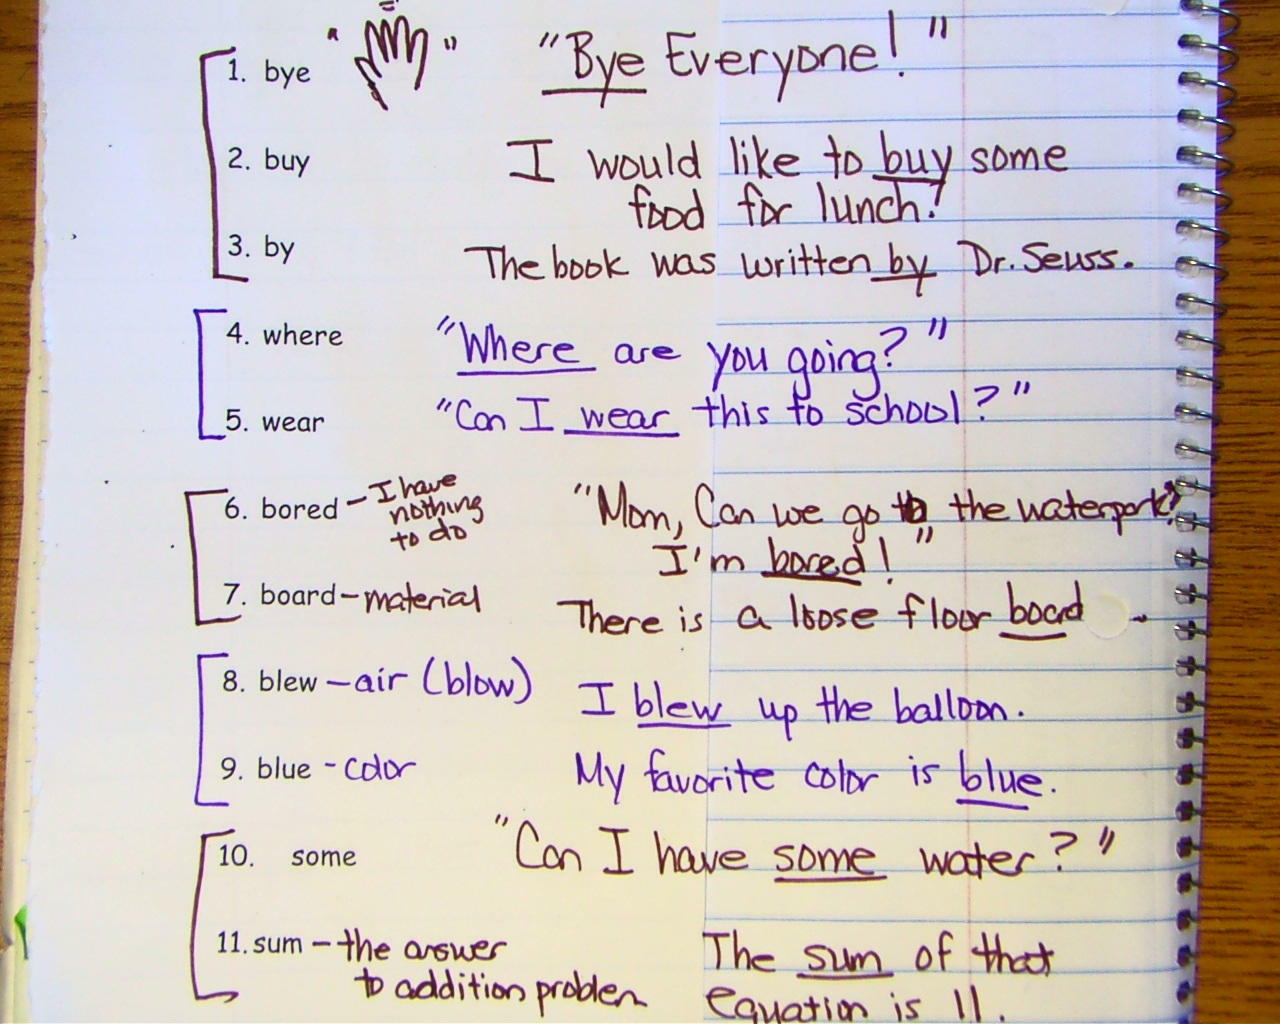 1. bye " " "Bye Everyone!"
2. buy I would like to buy some
food for lunch!
3. by The book was written by Dr. Seuss.
4. where "Where are you going?"
5. wear "Can I wear this to school?"
6. bored – I have
nothing
to do
"Mom, Can we go to the waterpark?
I'm bored!"
7. board – material There is a loose floor board .
8. blew – air (blow) I blew up the balloon.
9. blue - color My favorite color is blue.
10. some "Can I have some water?"
11. sum – the answer
to addition problem
The sum of that
equation is 11.